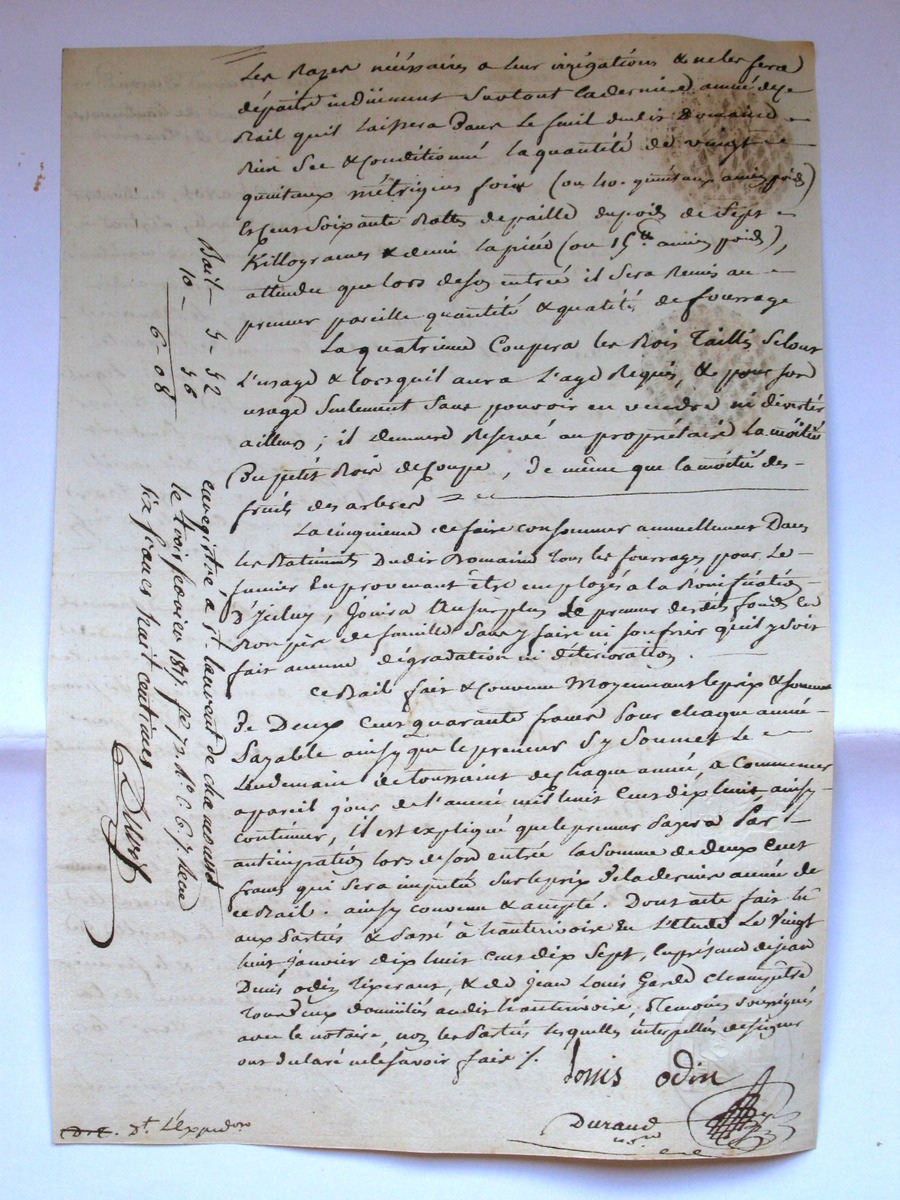 Les Razes nécéssaires a leur irrigations & ne les fera
dépaitre indüement Surtout la derniere année de ce
Bail quil Laissera Dans Le fenil dudit Domaine
Bien Sec & Conditionné la quantité de vingt
quintaux métriques foin (ou 40. quintaux ancien poids)
Et Cent Soixante Bottes de paille du poids de Sept
Killogrames & demi la piéce (ou 15 ll ancien poids),
attendu que lors de son entrée il Sera Remis au
preneur pareille quantité & qualité de fourrage
La quatrieme Coupera les Bois Taillis Selon
L'usage & lorsquil aura L'age Requis, & pour son
usage Seulement Sans pouvoir en vendre ni divertir
ailleurs ; il demeure Reservé au propriétaire La moitié
Du petit Bois de Coupe, De même que la moitié des
fruits des arbres
La cinquieme de faire consommer annuellement Dans
les Batiments Dudit Domaine Tous les fourrages pour Le
fumier En provenant être employés a la Bonification
D'Iceluy, Jouira Au surplus Le preneur desdits fonds En
Bon pére de famille Sans y faire ni souffrir quil y soit
fait aucune dégradation ni déterioration.
Ce Bail fait & Convenu Moyennant le prix & somme
De Deux Cent quarante francs Pour chaque année
Payable ainsy que le preneur S'y Soumet Le
Lendemain de toussaint de chaque année, a Commencer
a pareil jour de l'année mil huit Cent dix huit, ainsy
continuer, Il est expliqué que le preneur Payera Par
anticipation lors de son entrée la Somme de deux Cent
francs qui sera imputée Sur le prix De la derniere année de
ce Bail. ainsy convenu & accepté. Dont acte fait lu
aux Parties & Passé à hauterivoire En L'Etude Le Vingt
huit Janvier dix huit Cent dix Sept, En présence de jean
Denis odin tixerant, & de Jean Louis Garde Champêtre
Tous deux domiciliés audit hauterivoire, Témoins soussignés
avec le notaire, non les Parties lesquelles interpellées de signer
ont declaré ne le savoir faire /.
Louis odin
Durand
Dt. L'Expedon
Bail - 5 - 52
10 - 56
6 - 08
enregistré a St. laurent de chamousset
le trois fevrier 1817. fo 73. Ro C 6. 7 Recu
six francs huit centimes